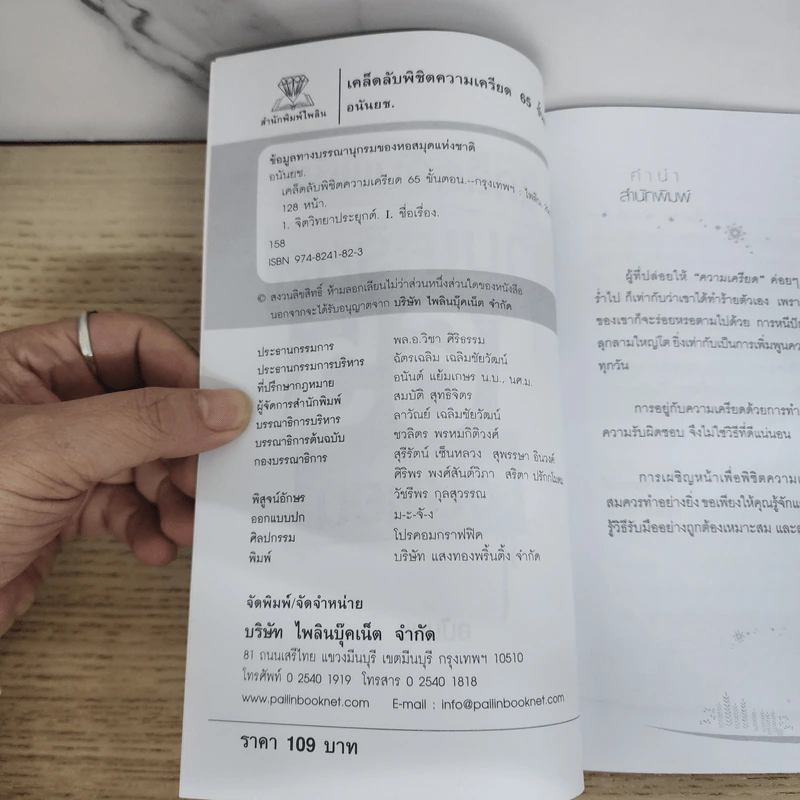 สำนักพิมพ์ไพลิน
เคล็ดลับพิชิตความเครียด 65
อนันยช.
ข้อมูลทางบรรณานุกรมของหอสมุดแห่งชาติ
อนันยช.
เคล็ดลับพิชิตความเครียด 65 ขั้นตอน.--กรุงเทพฯ : ไพลิน,
128 หน้า.
1. จิตวิทยาประยุกต์. I. ชื่อเรื่อง.
158
ISBN 974-8241-82-3
© สงวนลิขสิทธิ์ ห้ามลอกเลียนไม่ว่าส่วนหนึ่งส่วนใดของหนังสือ
นอกจากจะได้รับอนุญาตจาก บริษัท ไพลินบุ๊คเน็ต จำกัด
ประธานกรรมการ พล.อ.วิชา ศิริธรรม
ประธานกรรมการบริหาร ฉัตรเฉลิม เฉลิมชัยวัฒน์
ที่ปรึกษากฎหมาย อนันต์ แย้มเกษร น.บ., นศ.ม.
ผู้จัดการสำนักพิมพ์ สมบัติ สุทธิจิตร
บรรณาธิการบริหาร ลาวัณย์ เฉลิมชัยวัฒน์
บรรณาธิการต้นฉบับ ชวลิตร พรหมกิติวงศ์
กองบรรณาธิการ สุรีรัตน์ เซ็นหลวง สุพรรษา อินวงค์
ศิริพร พงศ์สันต์วิภา สริตา
พิสูจน์อักษร วัชรีพร กุลสุวรรณ
ออกแบบปก ม-ะ-จ้-ง
ศิลปกรรม โปรคอมกราฟฟิค
พิมพ์ บริษัท แสงทองพริ้นติ้ง จำกัด
จัดพิมพ์/จัดจำหน่าย
บริษัท ไพลินบุ๊คเน็ต จำกัด
81 ถนนเสรีไทย แขวงมีนบุรี เขตมีนบุรี กรุงเทพฯ 10510
โทรศัพท์ 0 2540 1919 โทรสาร 0 2540 1818
www.pailinbooknet.com E-mail : info@pailinbooknet.com
ราคา 109 บาท
คำนำ
สำนักพิมพ์
ผู้ที่ปล่อยให้ "ความเครียด" ค่อยๆ
ร่ำไป ก็เท่ากับว่าเขาได้ทำร้ายตัวเอง เพราะ
ของเขาก็จะร่อยหรอตามไปด้วย การหนีปัญ
ลุกลามใหญ่โต ยิ่งเท่ากับเป็นการเพิ่มพูนคว
ทุกวัน
การอยู่กับความเครียดด้วยการทำ
ความรับผิดชอบ จึงไม่ใช่วิธีที่ดีแน่นอน
การเผชิญหน้าเพื่อพิชิตความเ
สมควรทำอย่างยิ่ง ขอเพียงให้คุณรู้จักแ
รู้วิธีรับมืออย่างถูกต้องเหมาะสม และ